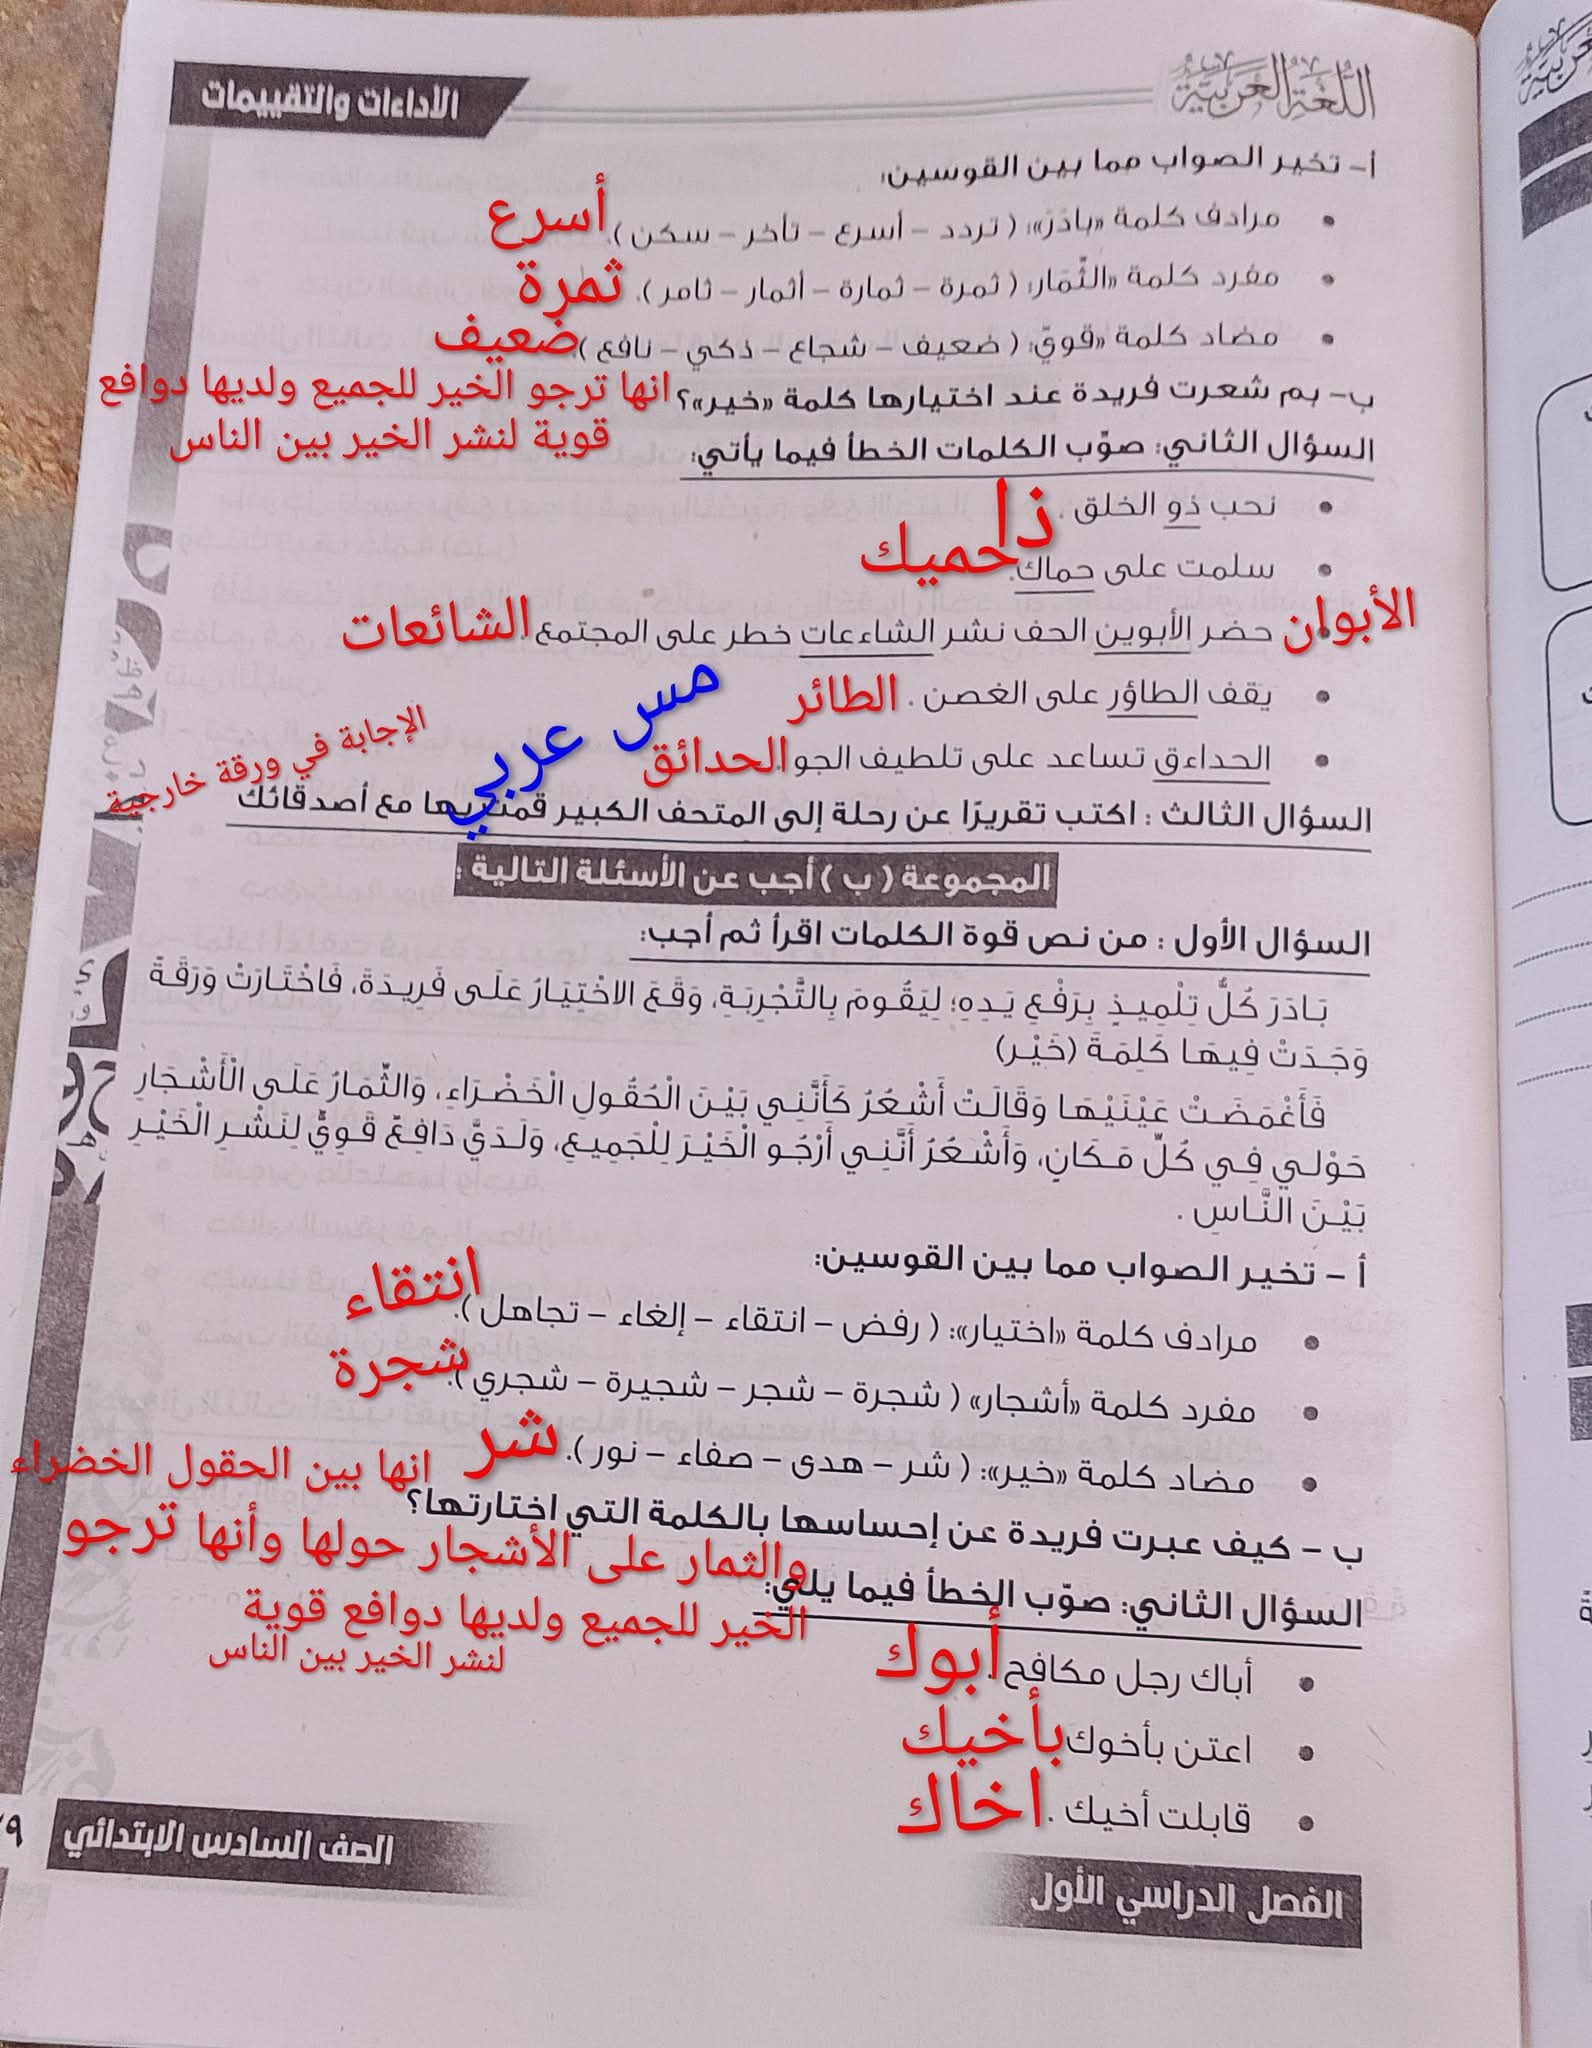 اللغة العربية
الأداءات والتقييمات
أ- تخير الصواب مما بين القوسين:
• مرادف كلمة «بادَرَ»: ( تردد – أسرع – تأخر – سكن ). أسرع
• مفرد كلمة «الثِّمَار: ( ثمرة – ثمارة – أثمار – ثامر ). ثمرة
• مضاد كلمة «قويّ: ( ضعيف – شجاع – ذكي – نافع ). ضعيف
ب- بم شعرت فريدة عند اختيارها كلمة «خير»؟ انها ترجو الخير للجميع ولديها دوافع
قوية لنشر الخير بين الناس
السؤال الثاني: صوِّب الكلمات الخطأ فيما يأتي:
• نحب ذو الخلق . ذا
• سلمت على حماك. حميك
• حضر الأبوين الحف نشر الشاءعات خطر على المجتمع . الأبوان الشائعات
• يقف الطاؤر على الغصن . الطائر
• الحداءق تساعد على تلطيف الجو . الحدائق
مس عربي
الإجابة في ورقة خارجية
السؤال الثالث : اكتب تقريرًا عن رحلة إلى المتحف الكبير قمت بها مع أصدقائك
المجموعة ( ب ) أجب عن الأسئلة التالية :
السؤال الأول : من نص قوة الكلمات اقرأ ثم أجب:
بَادَرَ كُلُّ تِلْمِيذٍ بِرَفْعِ يَدِهِ؛ لِيَقُومَ بِالتَّجْرِبَةِ، وَقَعَ الاخْتِيَارُ عَلَى فَرِيدَةَ، فَاخْتَارَتْ وَرَقَةً
وَجَدَتْ فِيهَا كَلِمَةَ (خَيْر)
فَأَغْمَضَتْ عَيْنَيْهَا وَقَالَتْ أَشْعُرُ كَأَنَّنِي بَيْنَ الْحُقُولِ الْخَضْرَاءِ، وَالثِّمَارُ عَلَى الْأَشْجَارِ
حَوْلِي فِي كُلِّ مَكَانٍ، وَأَشْعُرُ أَنَّنِي أَرْجُو الْخَيْرَ لِلْجَمِيعِ، وَلَدَيَّ دَافِعٌ قَوِيٌّ لِنَشْرِ الْخَيْرِ
بَيْنَ النَّاسِ .
أ – تخير الصواب مما بين القوسين:
• مرادف كلمة «اختيار»: ( رفض – انتقاء – إلغاء – تجاهل ). انتقاء
• مفرد كلمة «أشجار» ( شجرة – شجر – شجيرة – شجري ). شجرة
• مضاد كلمة «خير»: ( شر – هدى – صفاء – نور ). شر
ب – كيف عبرت فريدة عن إحساسها بالكلمة التي اختارتها؟ انها بين الحقول الخضراء
والثمار على الأشجار حولها وأنها ترجو
الخير للجميع ولديها دوافع قوية
لنشر الخير بين الناس
السؤال الثاني: صوّب الخطأ فيما يلي:
• أباك رجل مكافح . أبوك
• اعتن بأخوك بأخيك
• قابلت أخيك . اخاك
الفصل الدراسي الأول
الصف السادس الابتدائي